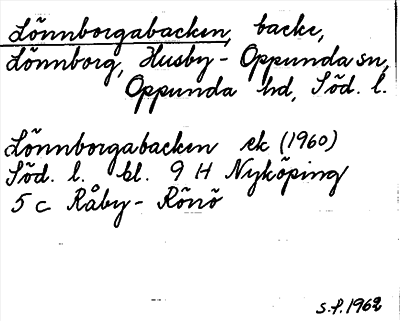 Lönnborgabacken, backe,
Lönnborg, Husby-Oppunda sn,
Oppunda hd, Söd. l.
Lönnborgabacken ek (1960)
Söd. l. bl. 9 H Nyköping
5 c Råby-Rönö
S.f. 1962